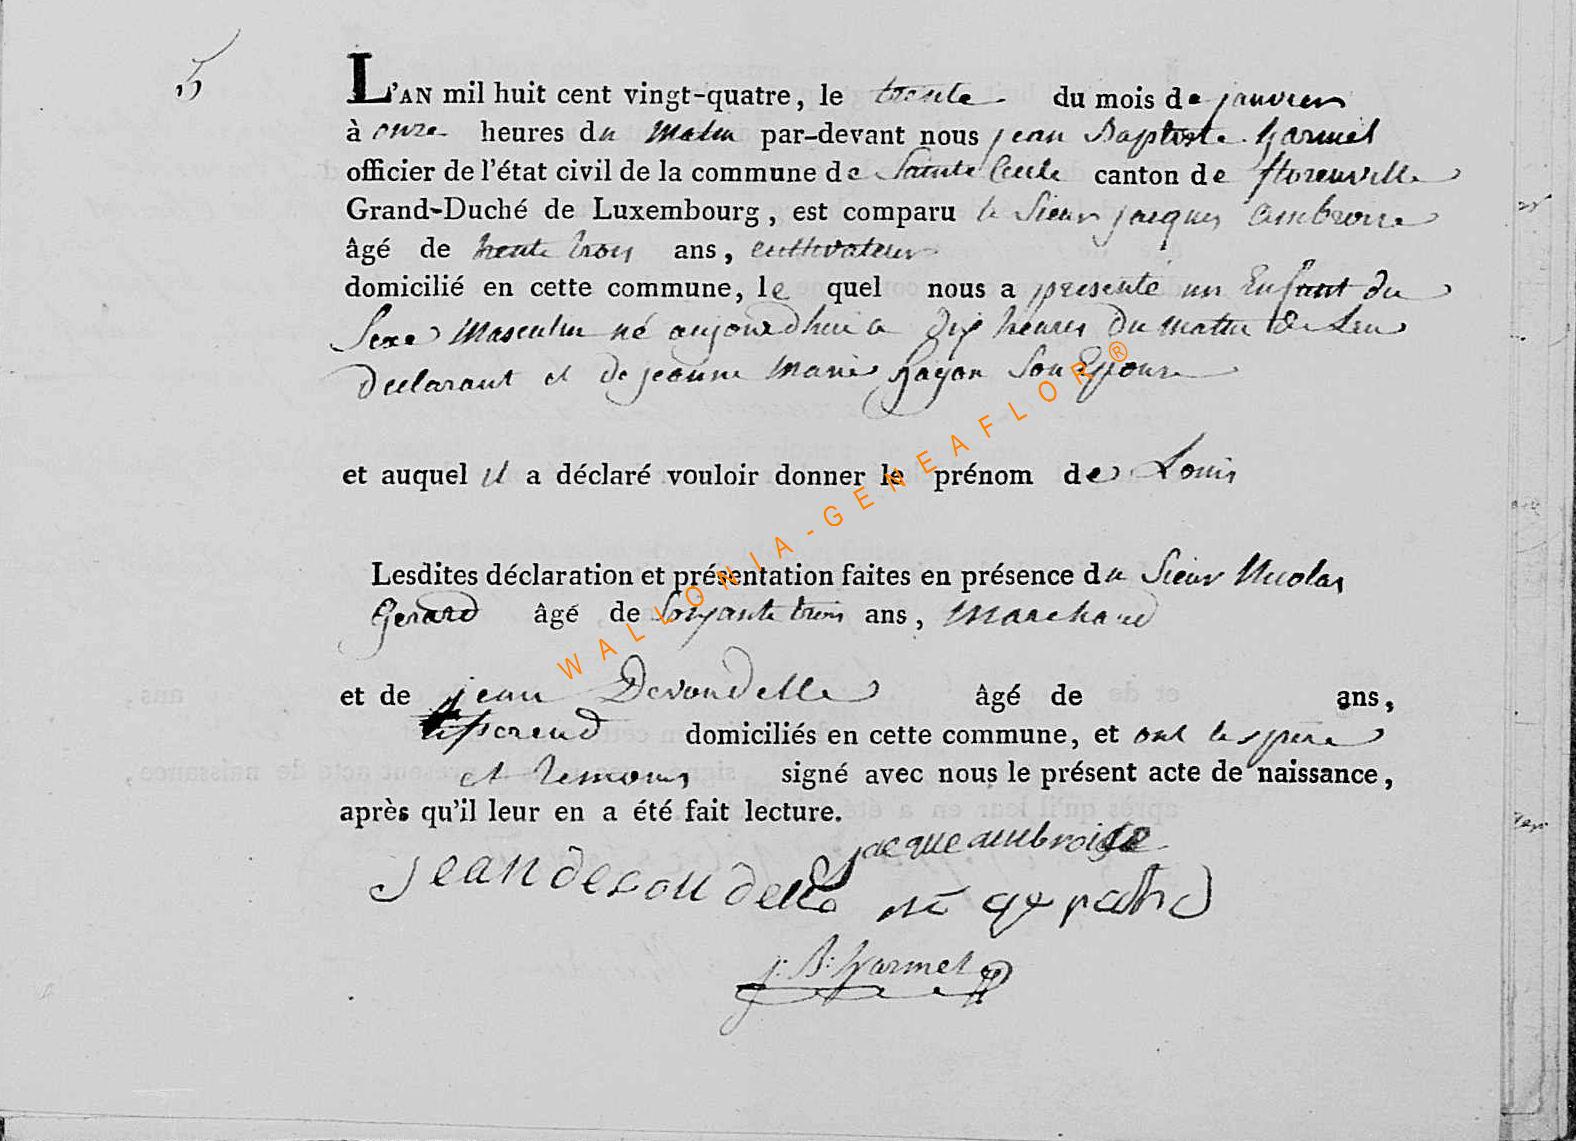 5
L'AN mil huit cent vingt-quatre, le trente du mois de janvier
à onze heures du Matin par-devant nous jean Baptiste harmel
officier de l'état civil de la commune de Sainte Cecile canton de florenville
Grand-Duché de Luxembourg, est comparu le Sieur jacques Ambroise
âgé de trente trois ans, cultivateur
domicilié en cette commune, le quel nous a presenté un Enfant du
Sexe Masculin né aujourdhui a dix heures du matin de Lui
declarant et de jeanne Marie hayon Son Epouse
et auquel il a déclaré vouloir donner le prénom de Louis
Lesdites déclaration et présentation faites en présence du Sieur Nicolas
Gerard âgé de Soixante trois ans, Marchand
et de jean Devondelle âgé de ans,
tisserend domiciliés en cette commune, et ont les pere
et temoins signé avec nous le présent acte de naissance,
après qu'il leur en a été fait lecture.
jacque ambroise
jean devondelle
j: B: harmel
WALLONIA-GENEAFLOR®